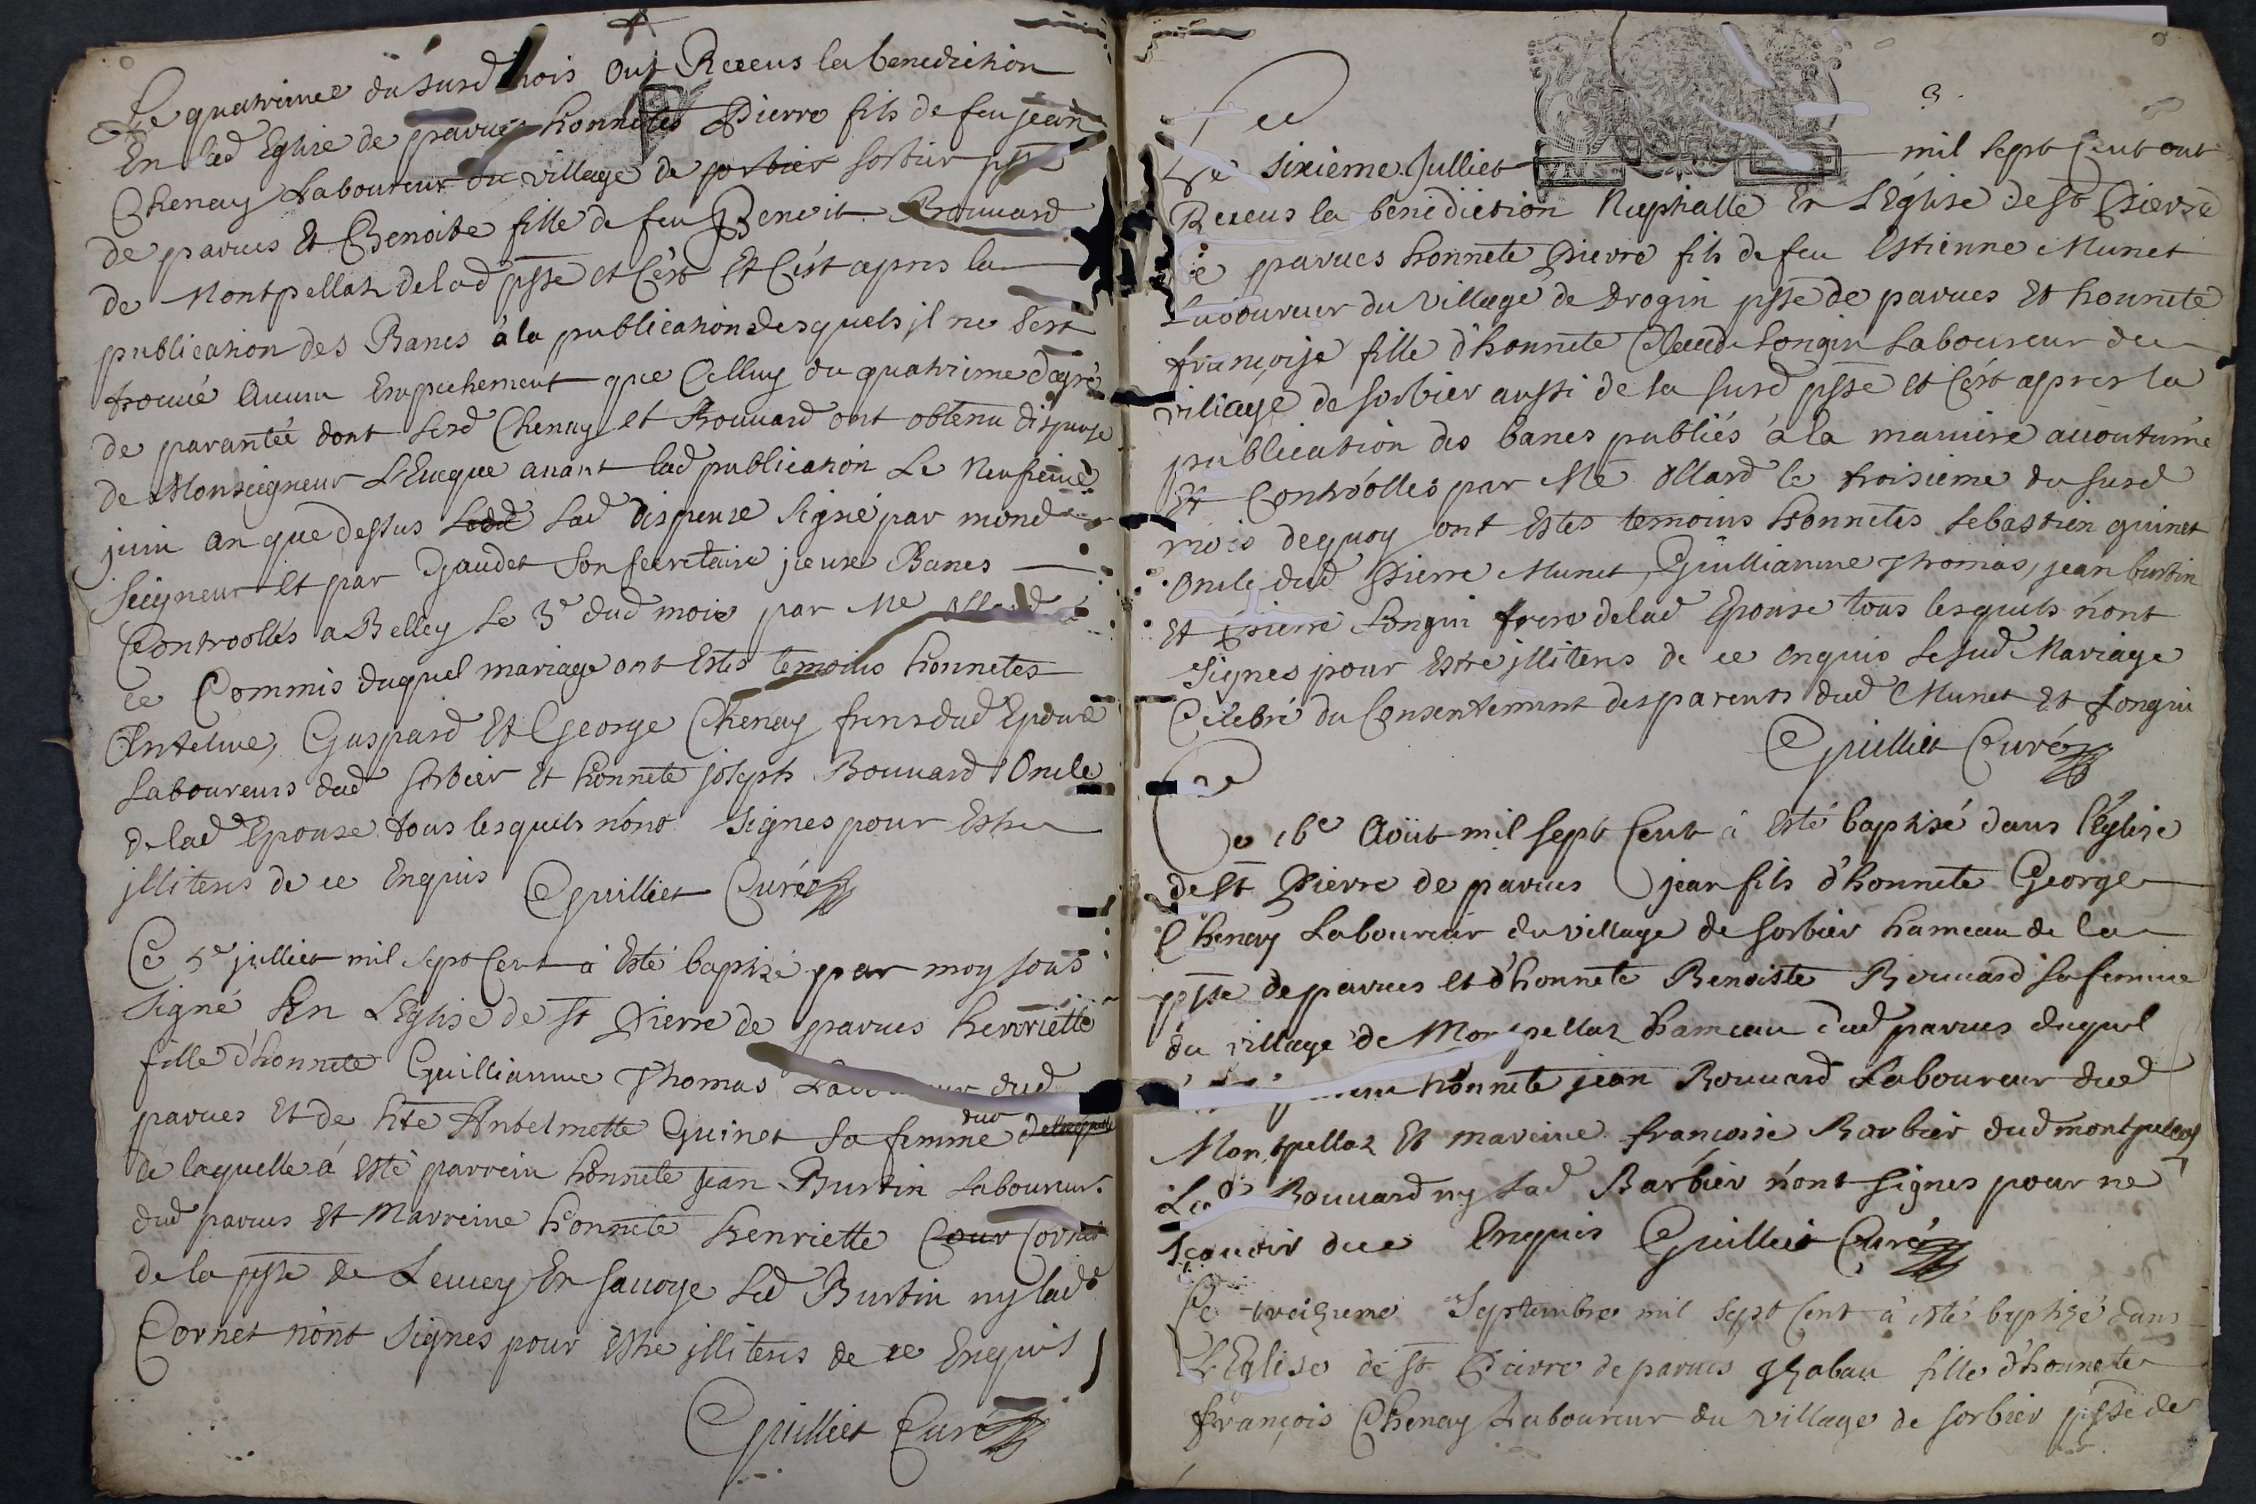 Le quatrimee du susd mois Ont Receus la benediction
En lad Eglise de parves honnetes Pierre fils de feu jean
Chenay Laboureur du village de sorbier psse
de parves Et Benoite fille de feu Benoit Bouvard
de Montpellaz de lad psse et C'est Et C'est apres la
publication des Bancs à la publication desquels jl ne s'est
trouvé Aucun Empechement que Celluy du quatrime degré
de parantée dont lesd Chenay et Bouvard ont obtenu dispense
de Monseigneur L'Eveque avant lad publication Le Neufieme
juin an que dessus lad dispense signé par mond
seigneur et par Gaudet son secretaire jceux Bancs
Controollés a Belley Le 3e dud mois par Me Allard
ce Commis duquel mariage ont Estes temoins honnetes
Antelme, Gaspard Et George Chenay freres dud Epoux
Laboureurs dud sorbier et honnete joseph Bouvard Oncle
de lad Epouse tous lesquels n'ont signes pour Estre
jlliteres de ce Enquis Guilliet Curé
Ce 5e julliet mil sept Cent à Esté baptizé par moy sous
signé En L'Eglise de st Pierre de parves henriette
fille d'honnete Guillianme Thomas Laboureur dud
parves Et de hte Antelmette Guinet sa femme dud
de laquelle à Esté parrein honnete jean Burtin Laboureur
dud parves Et Marreine honnete henriette Cour Cornet
de la psse de Lucey En savoye Led Burtin ny lade
Cornet n'ont signes pour Estre jlliteres de ce Enquis
Guilliet Curé
3
UN
Ce
Le sixieme Julliet mil sept Cent ont
Receus la bénédiction Nuptialle En L'Église de st Pierre
de parves honnete Pierre fils de feu Estienne Munet
Laboureur du village de Drogin psse de parves Et honnete
françoise fille d'honnete Claude Longin Laboureur du
village de sorbier aussi de la susd psse et C'est apres la
publication des bancs publiés à la maniere accoutumée
Et Controolles par Me Allard le troisieme du susd
mois de quoy ont Estes temoins honnetes sebastien guinet
Oncle dud Pierre Munet, Guillianme Thomas, jean burtin
Et Pierre Longin frere de lad Epouse tous lesquels n'ont
signes pour Estre jlliteres de ce enquis Lesud Mariage
Celebré du Consentement des parents dud Munet Et Longin
Guilliet Curé
Ce 16e Août mil sept Cent à Esté baptisé dans l'Église
de st Pierre de parves jean fils d'honnete George
Chenay Laboureur du village de sorbier hameau de la
psse de parves et d'honnete Benoiste Bouvard sa femme
du village de Montpellaz hameau dud parves duquel
honnete jean Bouvard Laboureur dud
Montpellaz Et mareine francoise Barbier dud montpellaz
Led Bouvard ny Lad Barbier n'ont signes pour ne
sçavoir de ce Enquis Guilliet Curé
Ce treizieme Septembre mil sept Cent à esté baptizé dans
L'Eglise de st Pierre de parves Yzabau fille d'honnete
françois Chenay Laboureur du village de sorbier psse de